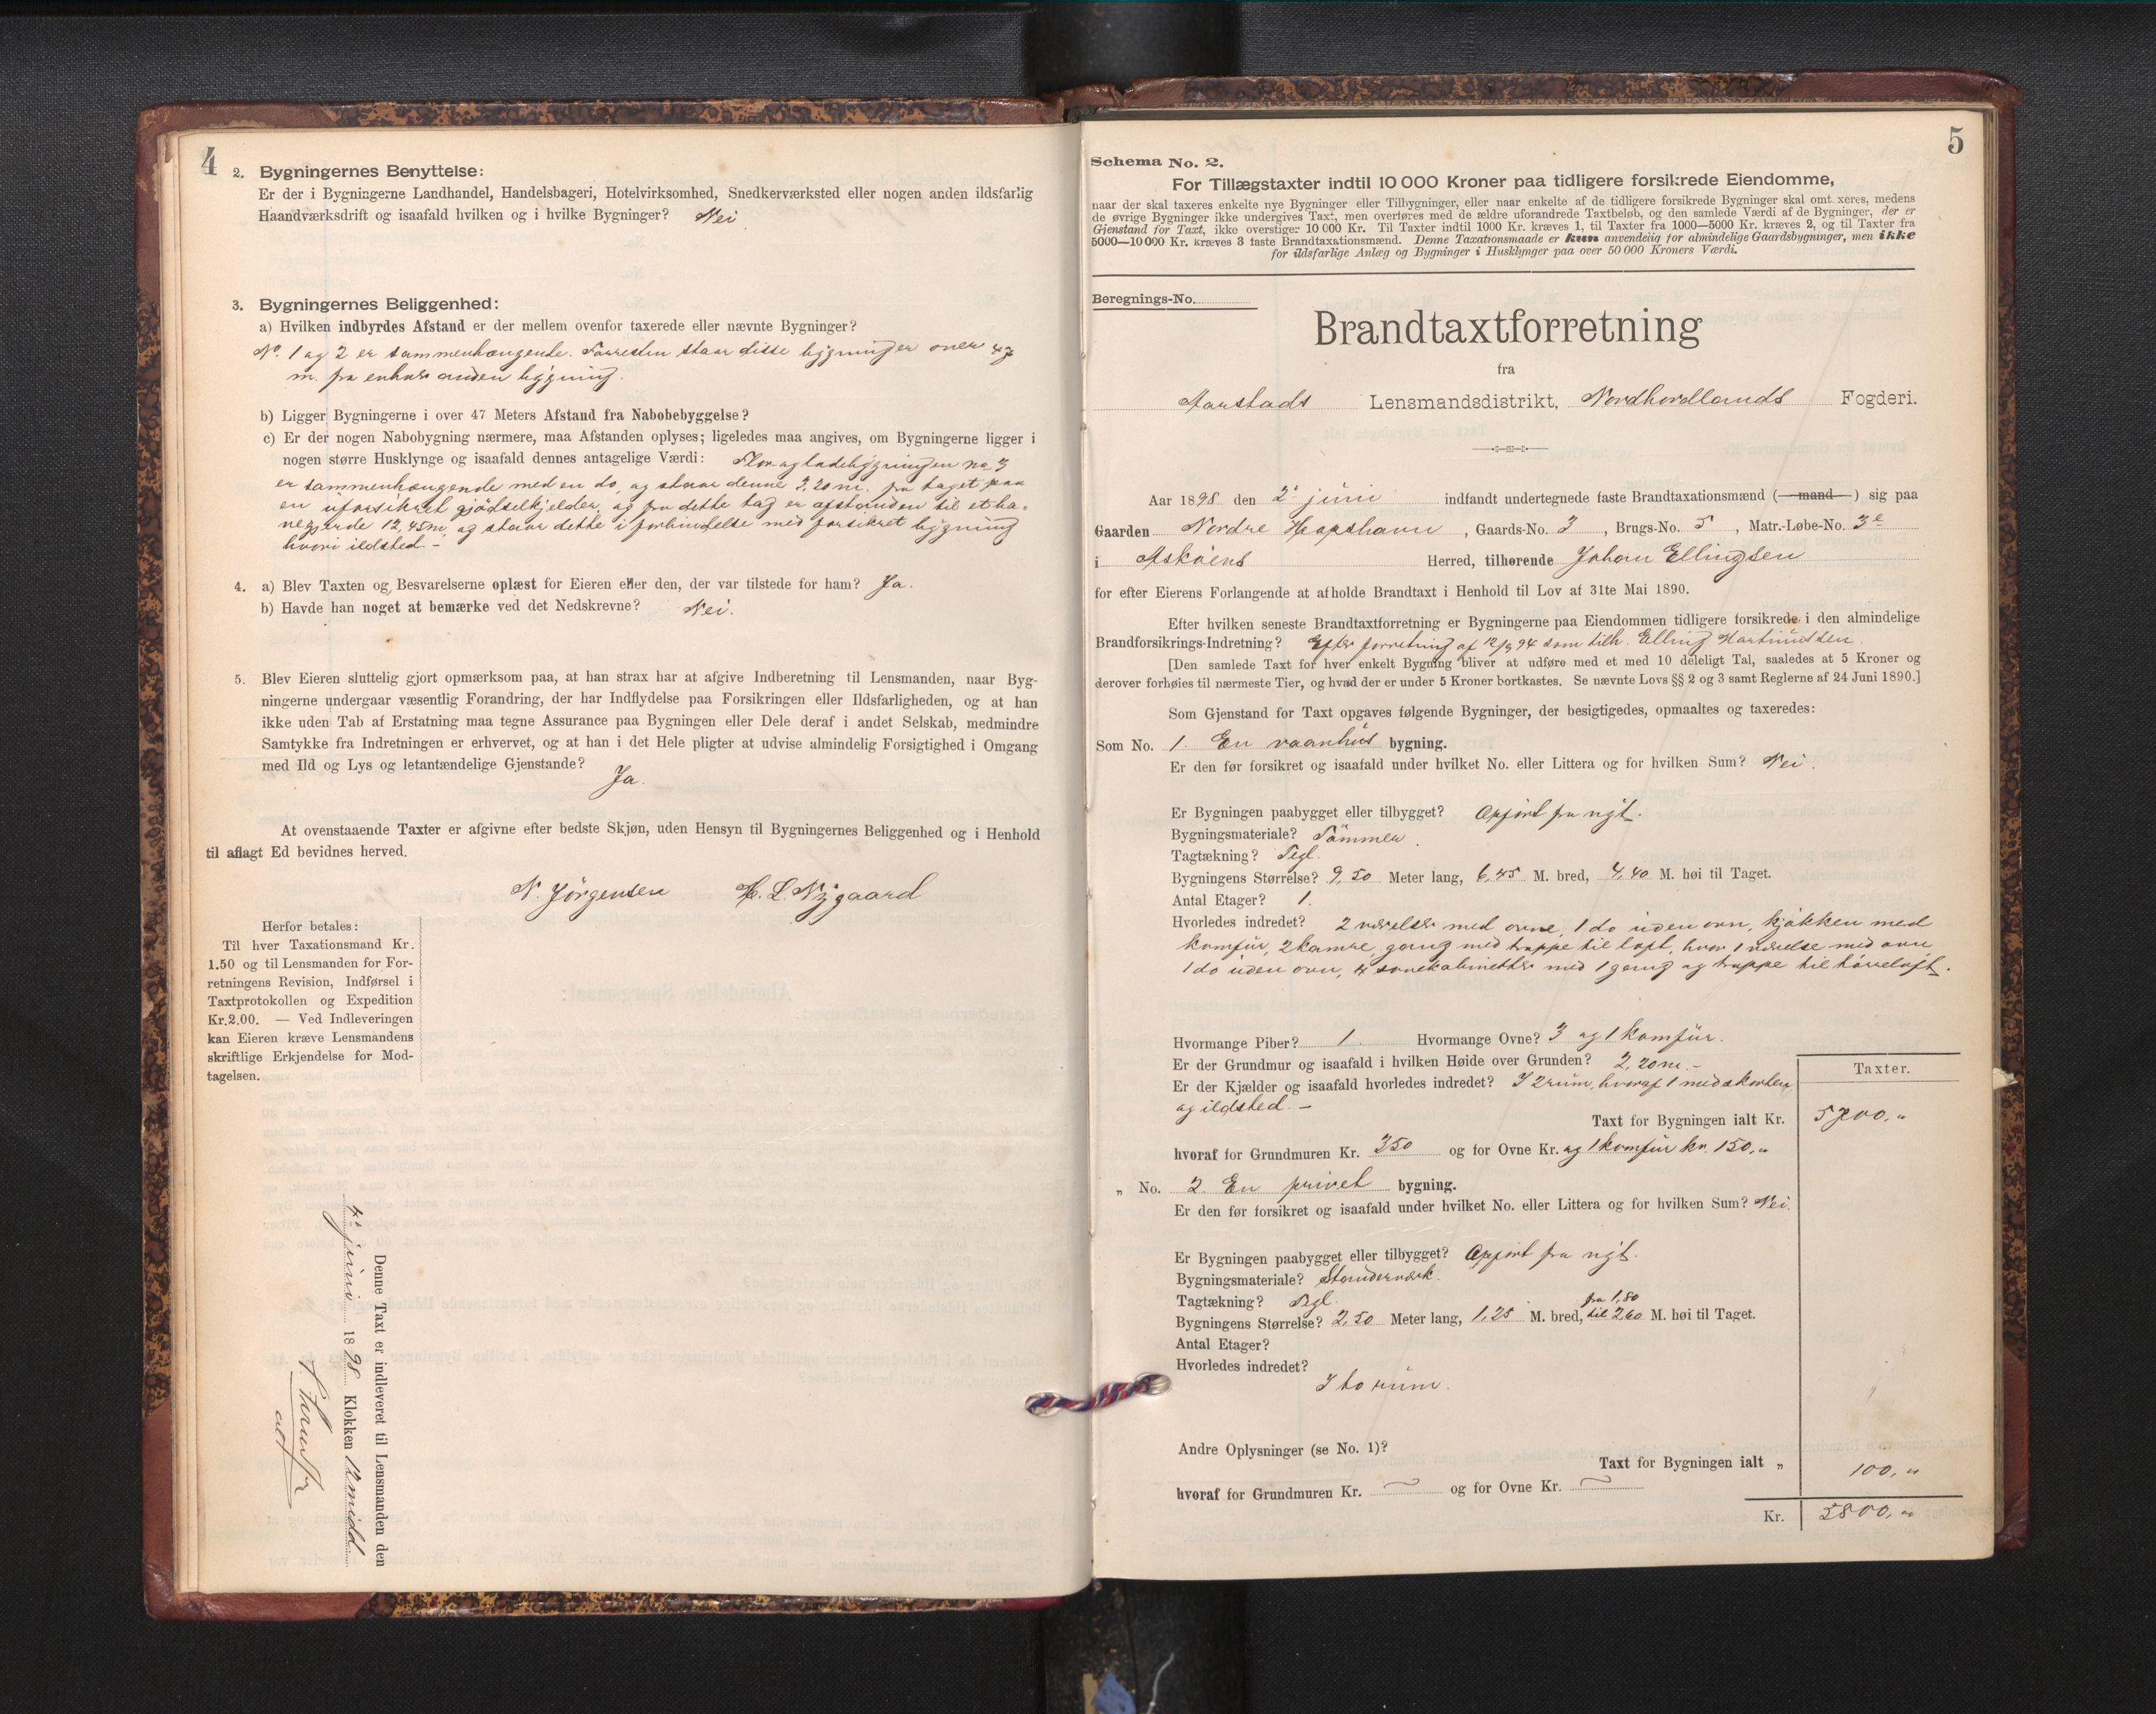 4
2. Bygningernes Benyttelse:
Er der i Bygningerne Landhandel, Handelsbageri, Hotelvirksomhed, Snedkerværksted eller nogen anden ildsfarlig
Haandværksdrift og isaafald hvilken og i hvilke Bygninger? Nei
3. Bygningernes Beliggenhed:
a) Hvilken indbyrdes Afstand er der mellem ovenfor taxerede eller nævnte Bygninger?
No. 1 og 2 er sammenhængende. Forresten staar disse bygninger over 47
m. fra enhver anden bygning.
b) Ligger Bygningerne i over 47 Meters Afstand fra Nabobebyggelse?
c) Er der nogen Nabobygning nærmere, maa Afstanden oplyses; ligeledes maa angives, om Bygningerne ligger i
nogen større Husklynge og isaafald dennes antagelige Værdi: Flor og ladebygningen no 3
er sammenhængende med en do, og staar denne 3,20 m. fra taget paa
en uforsikret gjødselkjelder, og fra dette tag er afstanden til et ha-
vegjerde 12,45 m, og staar dette i forbindelse med forsikret bygning
hvori ildsted. –
4. a) Blev Taxten og Besvarelserne oplæst for Eieren eller den, der var tilstede for ham? Ja.
b) Havde han noget at bemærke ved det Nedskrevne? Nei.
5. Blev Eieren sluttelig gjort opmærksom paa, at han strax har at afgive Indberetning til Lensmanden, naar Byg-
ningerne undergaar væsentlig Forandring, der har Indflydelse paa Forsikringen eller Ildsfarligheden, og at han
ikke uden Tab af Erstatning maa tegne Assurance paa Bygningen eller Dele deraf i andet Selskab, medmindre
Samtykke fra Indretningen er erhvervet, og at han i det Hele pligter at udvise almindelig Forsigtighed i Omgang
med Ild og Lys og letantændelige Gjenstande?
Ja.
At ovenstaaende Taxter er afgivne efter bedste Skjøn, uden Hensyn til Bygningernes Beliggenhed og i Henhold
til aflagt Ed bevidnes herved.
N. Jörgensen H. L. Nygaard
Herfor betales:
Til hver Taxationsmand Kr.
1.50 og til Lensmanden for For-
retningens Revision, Indførsel i
Taxtprotokollen og Expedition
Kr. 2.00. — Ved Indleveringen
kan Eieren kræve Lensmandens
skriftlige Erkjendelse for Mod-
tagelsen.
Denne Taxt er indleveret til Lensmanden den
4de juni 1898 Klokken 12 midd
5
Schema No. 2.
For Tillægstaxter indtil 10 000 Kroner paa tidligere forsikrede Eiendomme,
naar der skal taxeres enkelte nye Bygninger eller Tilbygninger, eller naar enkelte af de tidligere forsikrede Bygninger skal omt xeres, medens
de øvrige Bygninger ikke undergives Taxt, men overføres med de ældre uforandrede Taxtbeløb, og den samlede Værdi af de Bygninger, der er
Gjenstand for Taxt, ikke overstiger 10 000 Kr. Til Taxter indtil 1000 Kr. kræves 1, til Taxter fra 1000—5000 Kr. kræves 2, og til Taxter fra
5000—10 000 Kr. kræves 3 faste Brandtaxationsmænd. Denne Taxationsmaade er kun anvendelig for almindelige Gaardsbygninger, men ikke
for ildsfarlige Anlæg og Bygninger i Husklynger paa over 50 000 Kroners Værdi.
Beregnings-No.
Brandtaxtforretning
fra
Aarstads Lensmandsdistrikt, Nordhordlands Fogderi.
Aar 1898 den 2de juni indfandt undertegnede faste Brandtaxationsmænd (—mand—) sig paa
Gaarden Nordre Hopshavn, Gaards-No. 3, Brugs-No. 5, Matr.-Løbe-No. 3e
i Askøens Herred, tilhørende Johan Ellingsen
for efter Eierens Forlangende at afholde Brandtaxt i Henhold til Lov af 31te Mai 1890.
Efter hvilken seneste Brandtaxtforretning er Bygningerne paa Eiendommen tidligere forsikrede i den almindelige
Brandforsikrings-Indretning? Efter forretning af 12/9 94 som tilh. Elling Hartmutsen
[Den samlede Taxt for hver enkelt Bygning bliver at udføre med et med 10 deleligt Tal, saaledes at 5 Kroner og
derover forhøies til nærmeste Tier, og hvad der er under 5 Kroner bortkastes. Se nævnte Lovs §§ 2 og 3 samt Reglerne af 24 Juni 1890.]
Som Gjenstand for Taxt opgaves følgende Bygninger, der besigtigedes, opmaaltes og taxeredes:
Som No. 1. En vaanhus bygning.
Er den før forsikret og isaafald under hvilket No. eller Littera og for hvilken Sum? Nei.
Er Bygningen paabygget eller tilbygget? Opført fra nyt.
Bygningsmateriale? Tömmer.
Tagtækning? Tegl.
Bygningens Størrelse? 9,50 Meter lang, 6,45 M. bred, 4,40 M. høi til Taget.
Antal Etager? 1.
Hvorledes indredet? 2 værelser med ovne, 1 do uden ovn, kjøkken med
komfur, 2 kamre, gang med trappe til loft, hvor 1 værelse med ovn
1 do uden ovn, 4 sovekabinetter med 1 gang og trappe til törreloft.
Hvormange Piber? 1. Hvormange Ovne? 3 og 1 komfur.
Er der Grundmur og isaafald i hvilken Høide over Grunden? 2,20 m. –
Er der Kjælder og isaafald hvorledes indredet? I 2 rum, hvoraf 1 med skorsten
og ildsted. –
Taxter.
Taxt for Bygningen ialt Kr. 5700,"
hvoraf for Grundmuren Kr. 350 og for Ovne Kr. og 1 komfur kr. 150,"
" No. 2. En privet bygning.
Er den før forsikret og isaafald under hvilket No. eller Littera og for hvilken Sum? Nei.
Er Bygningen paabygget eller tilbygget? Opført fra nyt.
Bygningsmateriale? Standerværk.
Tagtækning? Tegl.
fra 1,80
Bygningens Størrelse? 2,50 Meter lang, 1,25 M. bred, til 2,60 M. høi til Taget.
Antal Etager?
Hvorledes indredet?
I to rum.
Andre Oplysninger (se No. 1)?
Taxt for Bygningen ialt " 100,"
hvoraf for Grundmuren Kr. og for Ovne Kr.
Kr. 5800,"